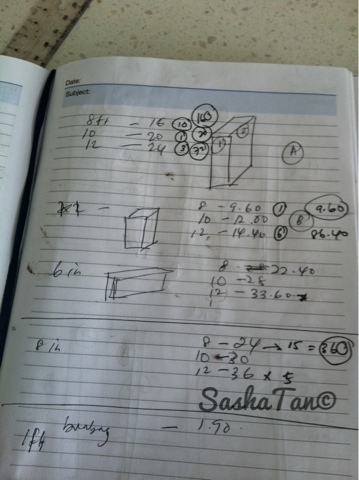 Date:
Subject:
8ft — 16 (10) (160)
10 — 20 (1)
12 — 24 (3) (72)
(A)
8 — 9.60 (1) (9.60)
10 — 12.00 (B)
12 — 14.40 (6) 86.40
6 in
8 — 22.40
10 — 28
12 — 33.60
8 in
8 — 24 → 15 = (360)
10 — 30
12 — 36 x 5
SashaTan©
1ft — 1.90